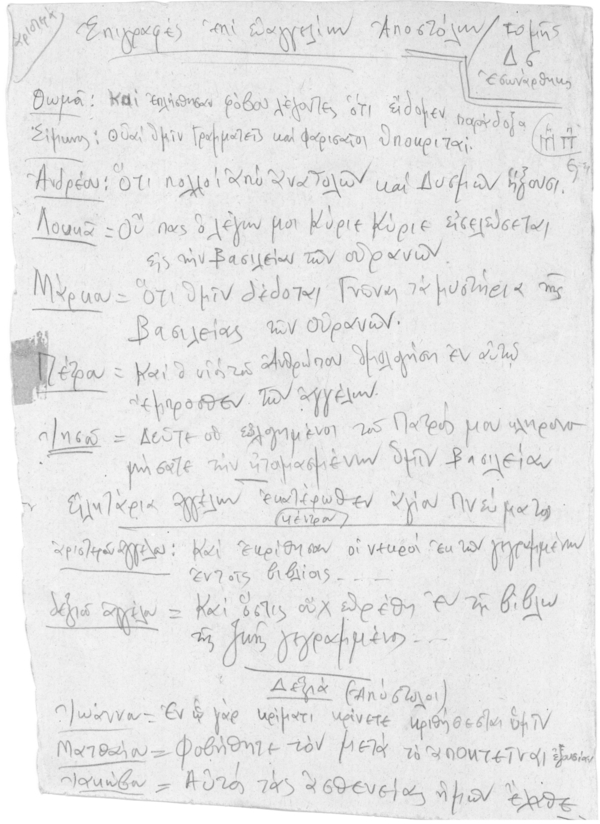 ἀριστερά
Ἐπιγραφές τῶν εὐαγγελίων Ἀποστόλων
τομῆς
Δ ς
Θωμᾶ: Καὶ ἐπλήσθησαν φόβου λέγοντες ὅτι εἴδομεν παράδοξα
Σίμωνος: Οὐαί ὑμῖν Γραμματεῖς καὶ Φαρισαῖοι ὑποκριταί.
Ἀνδρέου: Ὅτι πολλοί ἀπό ἀνατολῶν καὶ Δυσμῶν ἥξουσι.
Λουκᾶ = Οὔ πας ὁ λέγων μοι Κύριε Κύριε εἰσελεύσεται
εἰς τὴν Βασιλείαν τῶν οὐρανῶν.
Μάρκου = Ὅτι ὑμῖν δέδοται Γνῶναι τὰ μυστήρια τῆς
Βασιλείας τῶν οὐρανῶν.
Πέτρου = Καὶ ὁ υἱός τοῦ ἀνθρώπου ὁμολογήση ἐν αὐτῷ
ἔμπροσθεν τῶν ἀγγέλων.
Ἰησοῦ = Δεῦτε οἱ εὐλογημένοι τοῦ Πατρός μου κληρονο
μήσατε τὴν ἡτοιμασμένην ὑμῖν Βασιλείαν
Εἰλητάρια ἀγγέλων ἑκατέρωθεν ἁγίου Πνεύματος
κέντρον
ἀριστεροῦ ἀγγέλου: Καὶ ἐκρίθησαν οἱ νεκροί ἐκ τῶν γεγραμμένων
ἐν τοῖς βιβλίοις ....
δεξιοῦ ἀγγέλου = Καὶ ὅστις οὐχ εὑρέθη ἐν τῇ βίβλῳ
τῆς ζωῆς γεγραμμένος ...
Δεξιά (Ἀπόστολοι)
Ἰωάννου = Ἐν ᾧ γὰρ κρίματι κρίνετε κριθήσεσται ὑμῖν
Ματθαίου = Φοβήθητε τὸν μετά τὸ ἀποκτεῖναι ἐξουσίαν
Ἰακώβου = Αὐτός τὰς ἀσθενείας ἡμῶν ἔλαβε